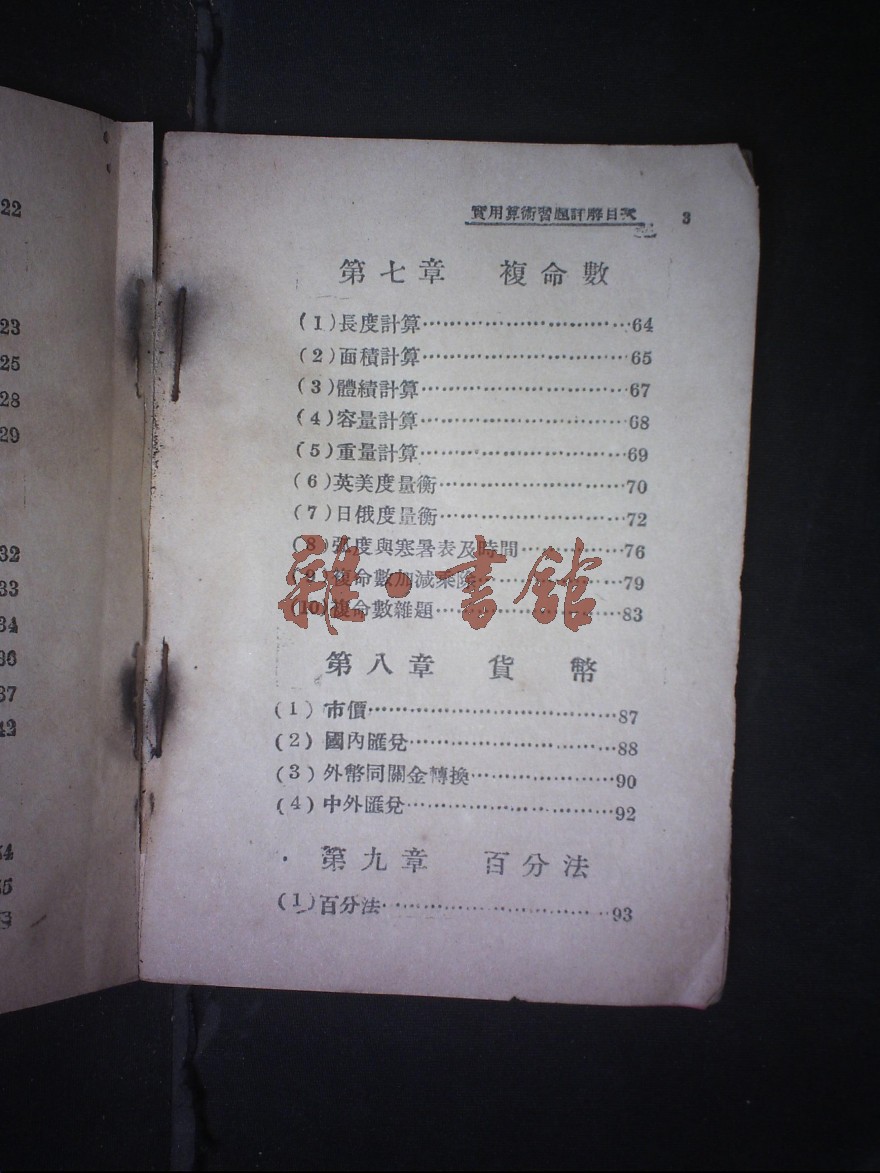 22
23
25
28
29
32
33
34
36
37
42
實用算術習題詳解目次 3
第七章 複命數
(1)長度計算……………………………64
(2)面積計算……………………………65
(3)體績計算……………………………67
(4)容量計算……………………………68
(5)重量計算……………………………69
(6)英美度量衡…………………………70
(7)日俄度量衡…………………………72
(8)弧度與寒暑表及時間………………76
(9)複命數加減乘除……………………79
(10)複命數雜題…………………………83
雜·書館
第八章 貨幣
(1)市價…………………………………87
(2)國內匯兌……………………………88
(3)外幣同關金轉換……………………90
(4)中外匯兌……………………………92
第九章 百分法
(1)百分法………………………………93